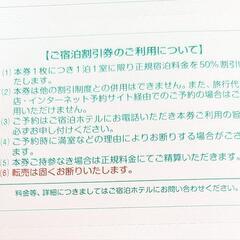 【ご宿泊割引券のご利用について】
(1) 本券1枚につき1泊1室に限り正規宿泊料金を50%割引い
たします。
(2) 本券は他の割引制度との併用はできません。また、旅行代
店・インターネット予約サイト経由でのご予約の場合はご
用いただけません。
(3) ご予約はご宿泊ホテルにお電話いただき本券ご利用の旨
必ずお申し付けください。
(4) ご予約時に満室などの理由によりお断りする場合がござ
ます。
(5) 本券ご持参なき場合は正規料金にてご精算いただきます。
(6) 転売は固くお断りいたします。
料金等、詳細につきましてはご宿泊ホテルにお問い合わせください。